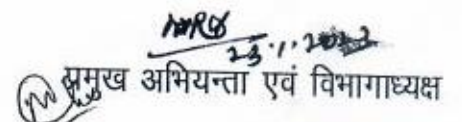 23.1.2023
प्रमुख अभियन्ता एवं विभागाध्यक्ष